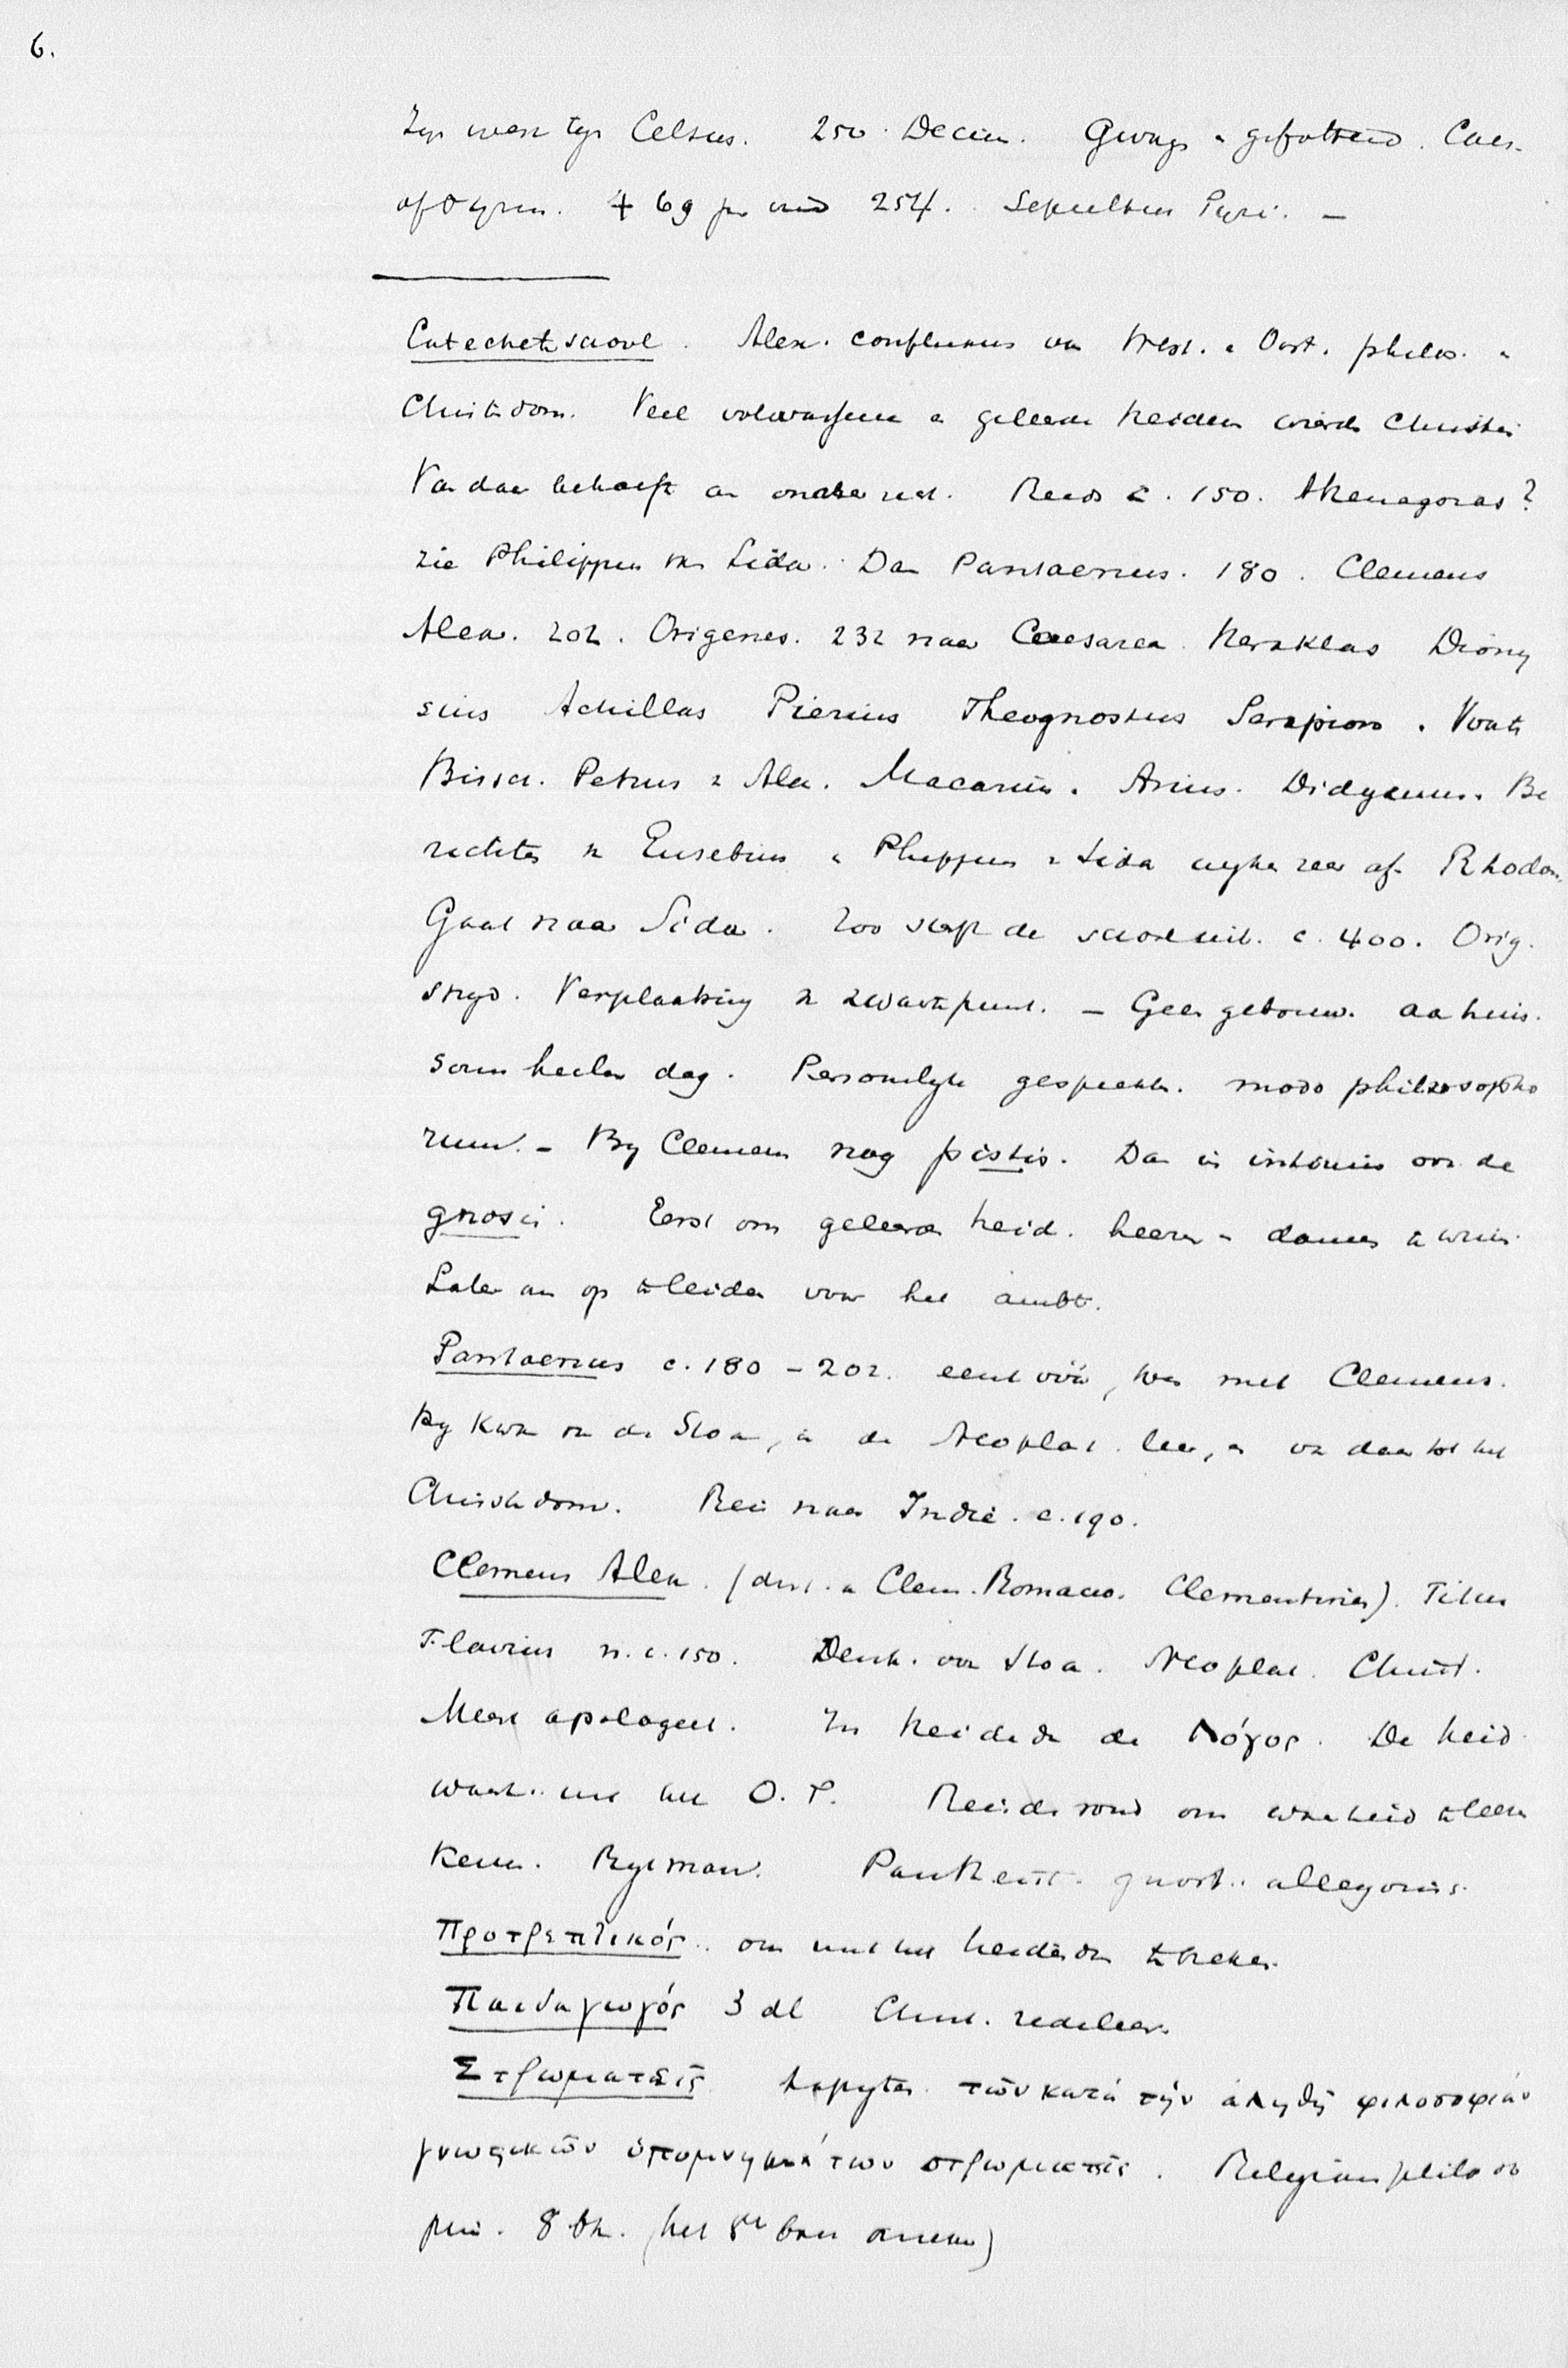 6.
Zijn werk teg Celsus. 250. Decius. Gevang. gefolterd. Caes.
of Tyrus. † 69 jr oud 254. Sepultus Tyri. —
Catechetschool. Alex. confluxus van West. & Oost. philos. &
Christedom. Veel volwassene & geleerde heiden werde Christen
Van daar behoeft aan onderricht. Reeds c. 150. Athenagoras?
zie Philippus van Sida. Dan Pantaenus. 180. Clemens
Alex. 202. Origenes. 232 naar Caesarea. Heraklas Diony
sius Achillas Pierius Theognostus Serapion. Voorts
Bissch. Petrus v Alex. Macarius. Arius. Didymus. Be
richten v Eusebius & Philippus v Sida wyken zeer af. Rhodon.
Gaat naar Sida. Zoo sterft de school uit. c. 400. Orig.
stryd. Verplaatsing v zwaartepunt. — Geen gebouw. aan huis.
soms heelen dag. Persoonlyke gesprekken. modo philosopho
rum. — By Clemens nog pistis. Dan is intomis de
gnosis. Eerst om geleerde heid. heeren & dames te winn.
Later om op te leiden voor het ambt.
Pantaenus c. 180 – 202. eerst vóór, toen met Clemens.
Hy kwam v de Stoa, in de Neoplat. leer, & van daar tot het
Christedom. Reis naar Indië. c. 190.
Clemens Alex. (dist. v Clem. Romanus. Clementinen). Titus
Flavius n. c. 150. Stoa. Neoplat. Christ.
Meest apologeet. In heidedom de Λόγος. De heid.
waarh. met het O.T. Reisde rond om waarheid te leeren
kennen. Ryk man. Pantheist. gnost. allegoris.
Προτρεπτικός. om uit het heidedom te trekken.
Παιδαγωγός 3 dl Christ. zedeleer.
Στρωματεῖς tapyten. τῶν κατὰ τὴν ἀληθῆ φιλοσοφίαν
γνωστικῶν ὑπομνημάτων στρωματεῖς. Religieus philoso
phie. 8 bk. (het 8e boek onecht)